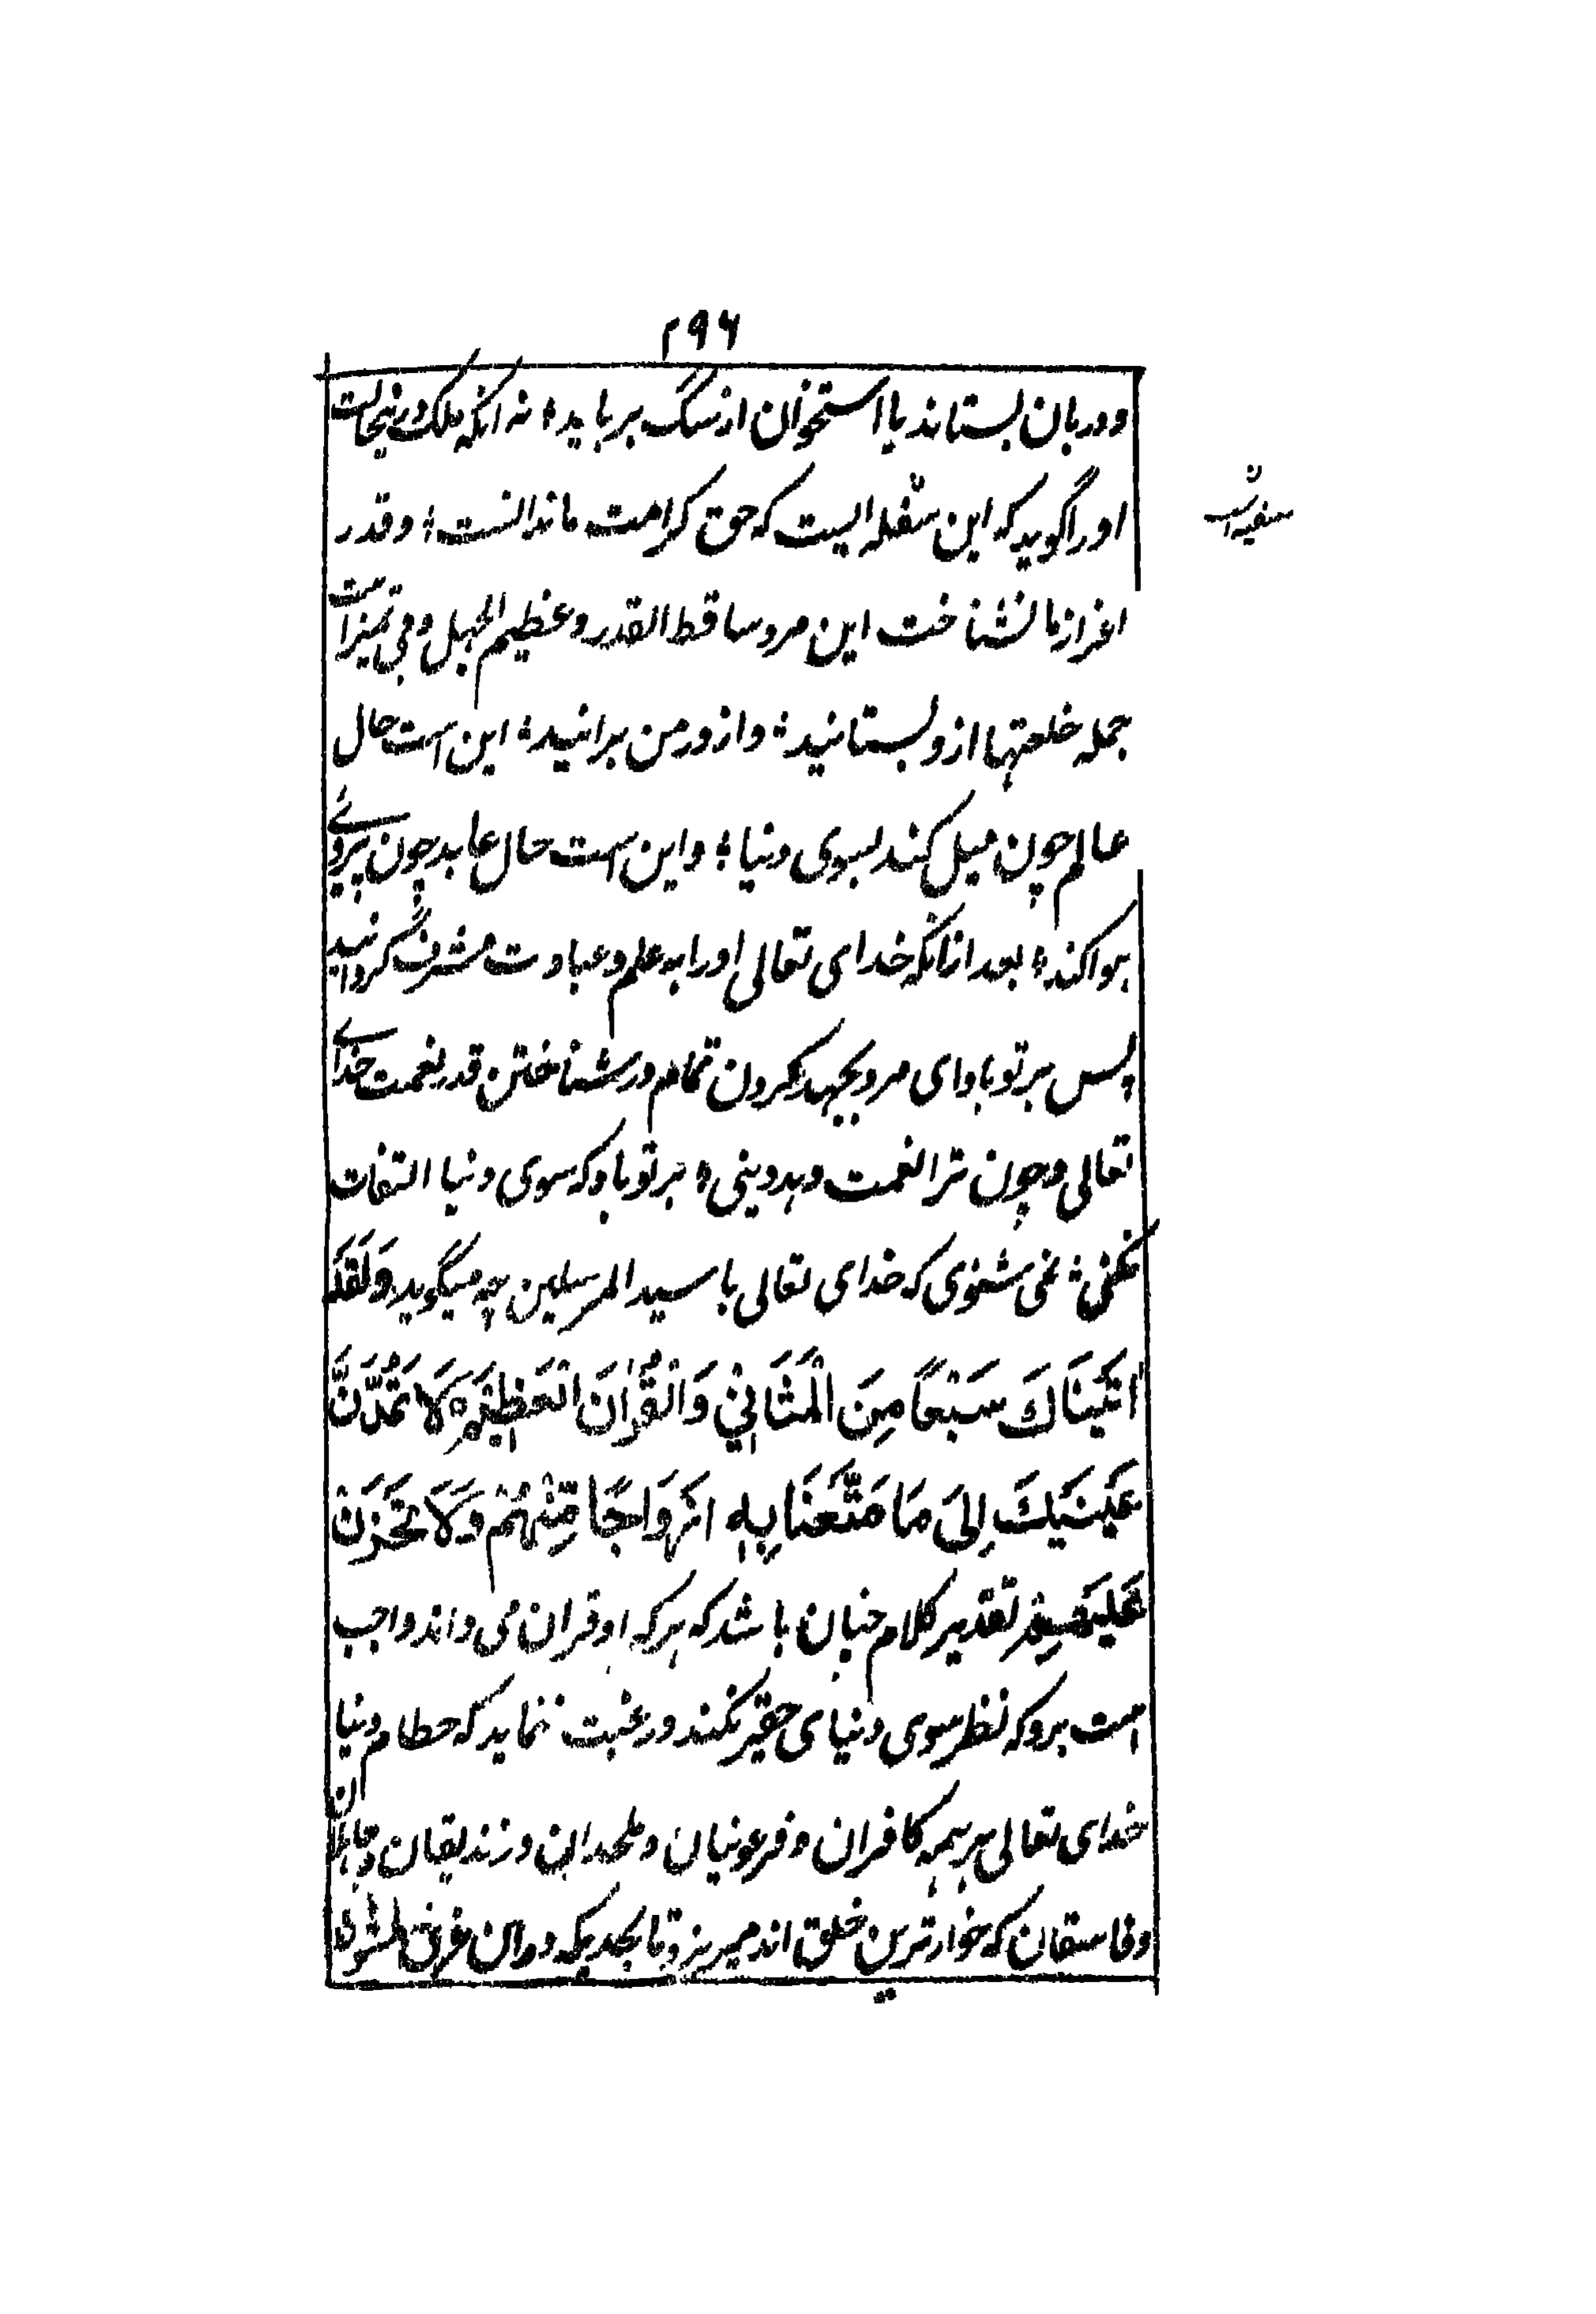 ۲۹۶
و دربان بستاند یا استخوان از سگ بر باید؛ نه انکه ملک درینحالت
او را گوید که این سفله ایست که حق کرامت ما ندانست؛ و قدر
اعزاز ما نشناخت این مرد ساقط القدر و عظیم الجهل و بی تمیز است
جمله خلعتها ازو بستانید؛ و از در من برانید؛ این است حال
عالم چون میل کند بسوی دنیا؛ و این است حال عابد چون پیروی
هوا کند؛ بعد ازانکه خدای تعالی او را به علم و عبادت مشرف گردانید
پس بر تو باد ای مرد بجهد کردن تمام در شناختن قدر نعمت خدای
تعالی و چون ترا نعمت دهد دینی؛ بر تو باد که سوی دنیا التفات
نکنی؛ نمی شنوی که خدای تعالی با سید المرسلین چه میگوید وَلَقَدْ
اٰتَیْنَاكَ سَبْعًا مِنَ الْمَثَانِیْ وَالْقُرْاٰنَ الْعَظِیْمَ ہ لَا تَمُدَّنَّ
عَیْنَیْكَ اِلیٰ مَا مَتَّعْنَا بِهٖ اَزْوَاجًا مِّنْهُمْ وَلَا تَحْزَنْ
عَلَیْهِمْ تقدیر کلام چنان باشد که هر که او قران می داند واجب
است برو که نظر سوی دنیای حقیر نکند و رغبت ننماید که حطام دنیا
خدای تعالی بر همه کافران و فرعونیان و ملحدان و زندیقان و جاهلان
و فاسقان که خوارترین خلق اند میریزد تا بحدیکه دران غرق